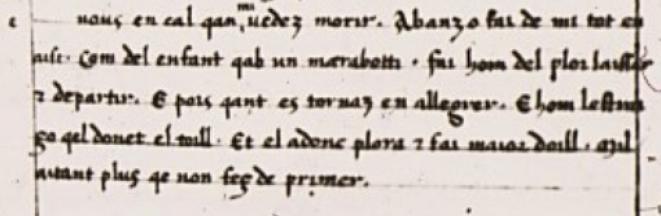 c nous en cal qan mi uedez morir. Abanz o fai de mi tot en
aisi. Com del enfant qab un marabotti. fai hom del plor laisser
⁊ departir. E pois qant es tornaz en allegrer. E hom lestrai
ço qel donet el toill. Et el adonc plora ⁊ fai maior doill. Mil
aitant plus qe non feç de primer.